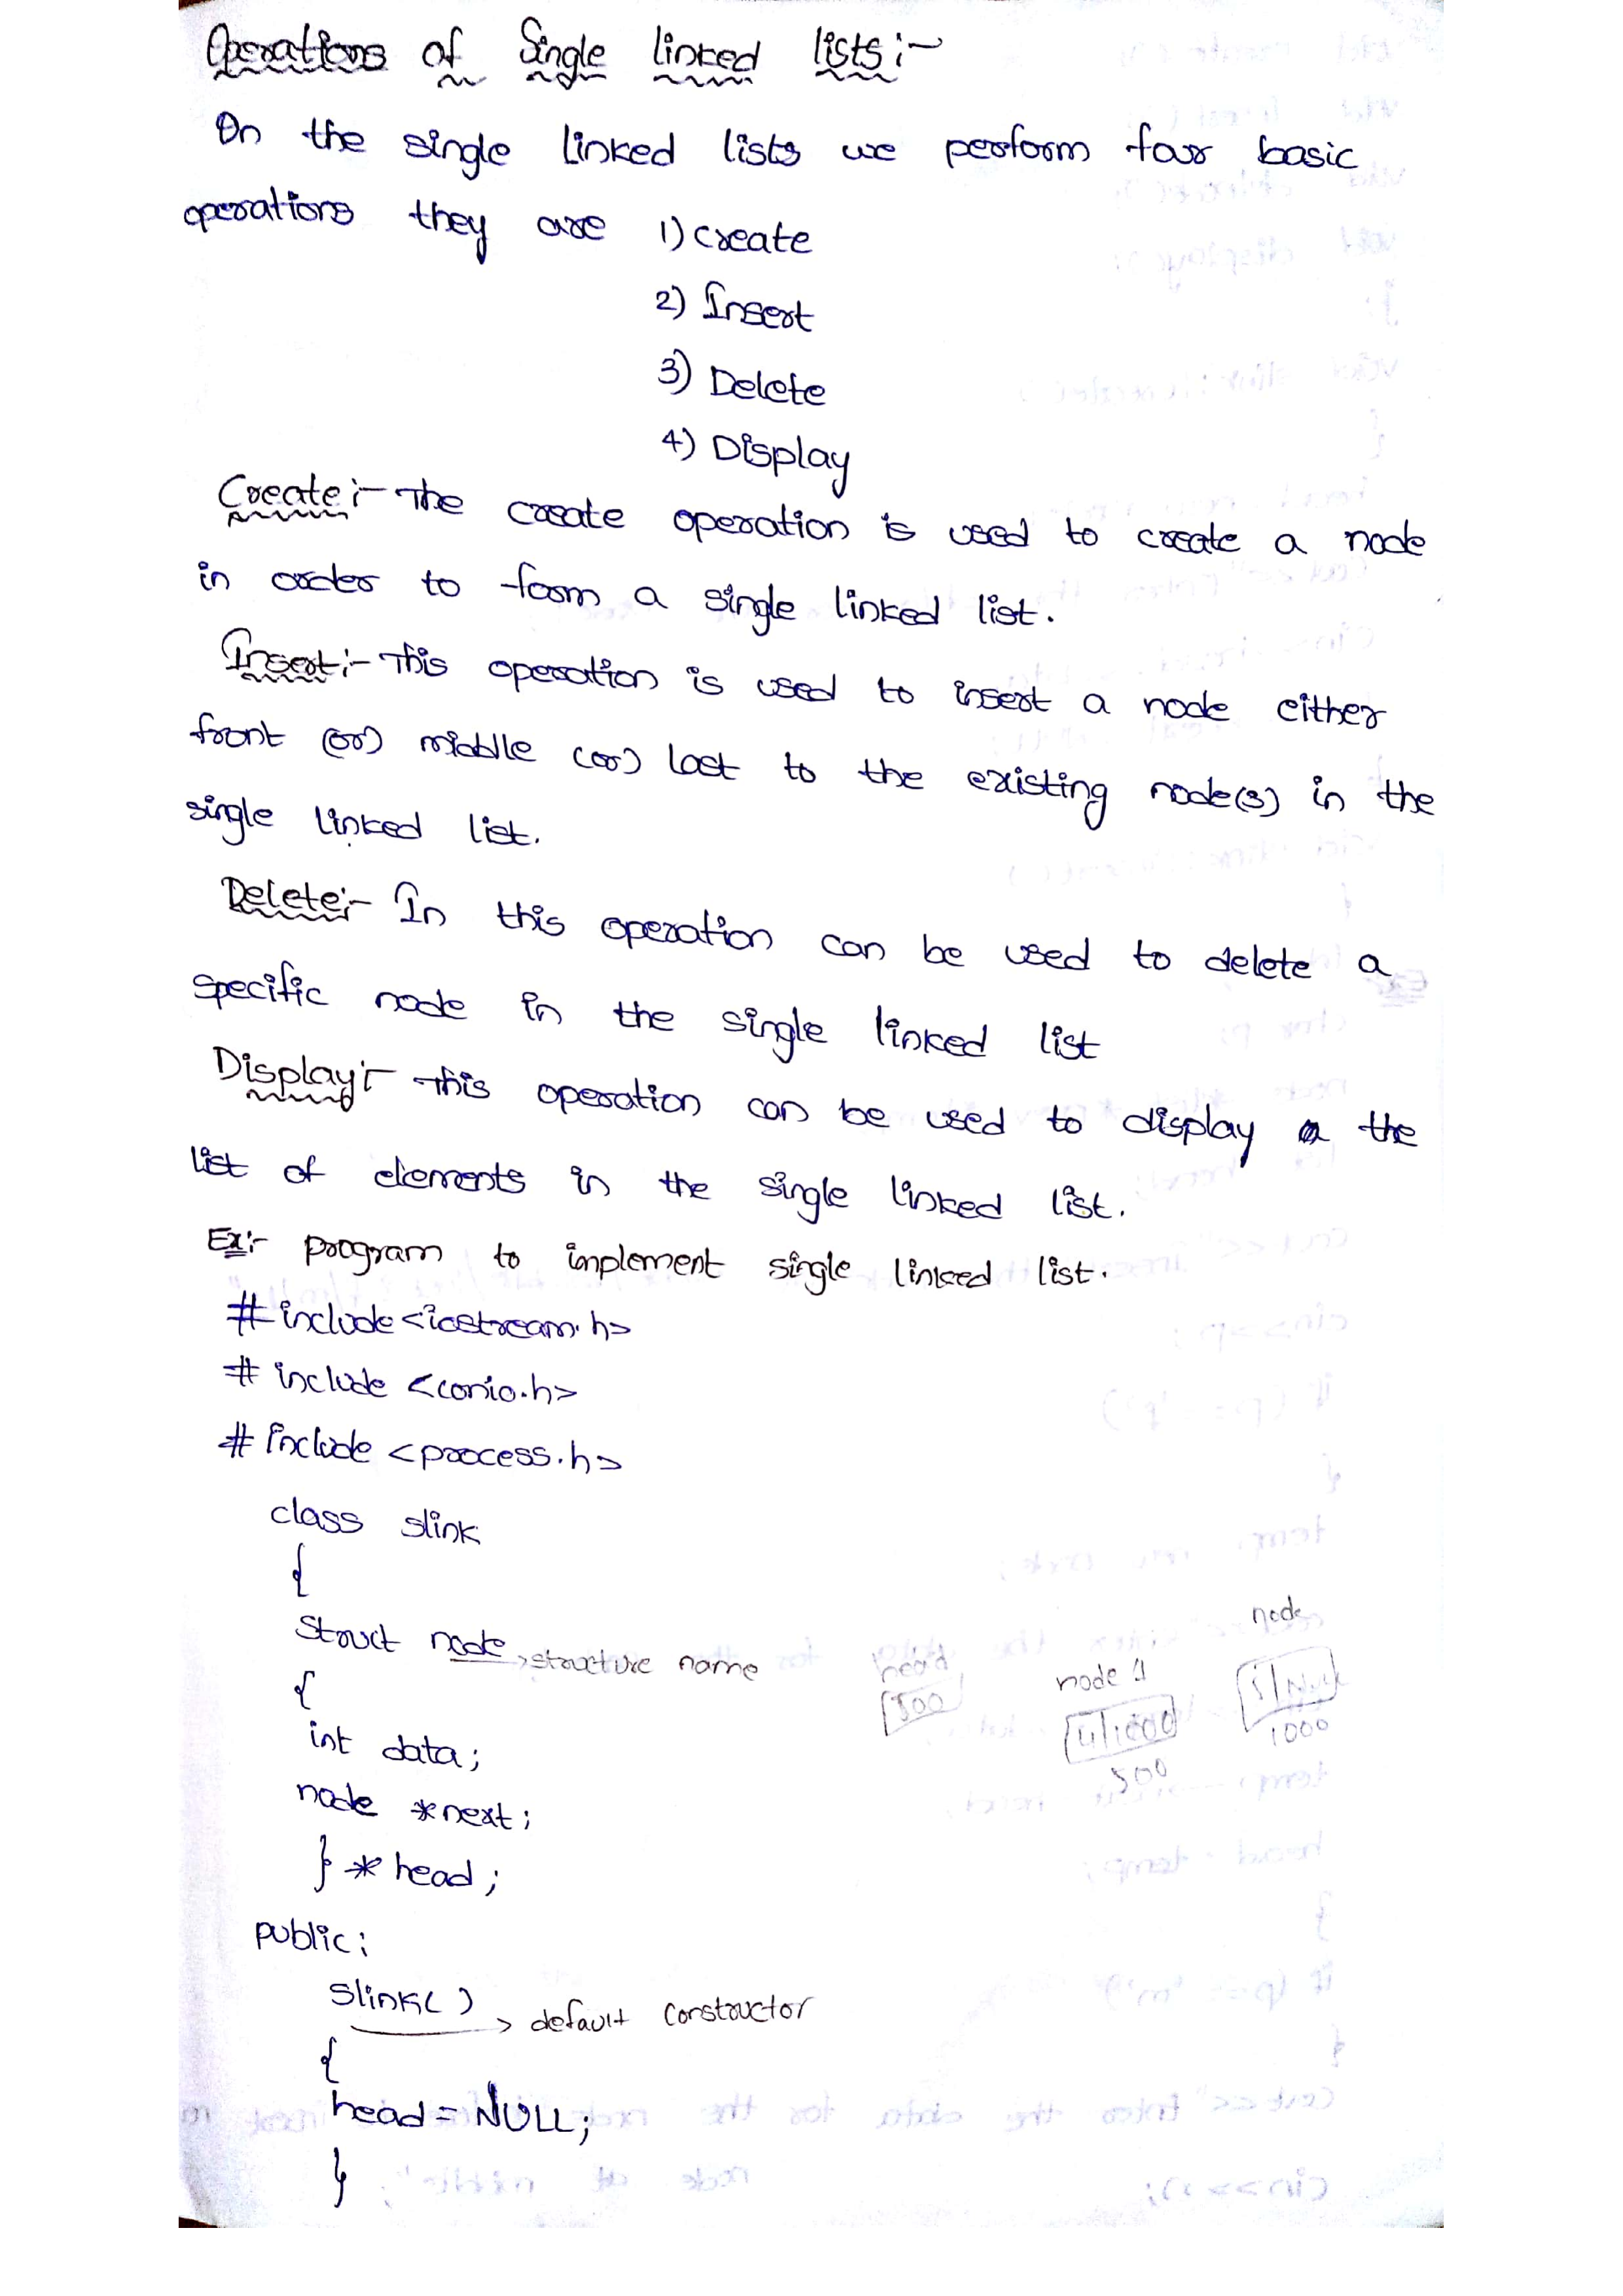 Operations of Single linked lists:-
On the single linked lists we perform four basic
operations they are 1) create
2) Insert
3) Delete
4) Display
Create:- The create operation is used to create a node
in order to form a single linked list.
Insert:- This operation is used to insert a node either
front (or) middle (or) last to the existing node(s) in the
single linked list.
Delete:- In this operation can be used to delete a
specific node in the single linked list
Display:- This operation can be used to display the
list of elements in the single linked list.
Ex:- program to implement single linked list.
#include<iostream.h>
# include <conio.h>
# include <process.h>
class slink
{
Struct node structure name
{
int data;
node *next;
} * head;
head
500
node 1
4|1000
500
node
5|Null
1000
public:
Slink( ) > default constructor
{
head = NULL;
}